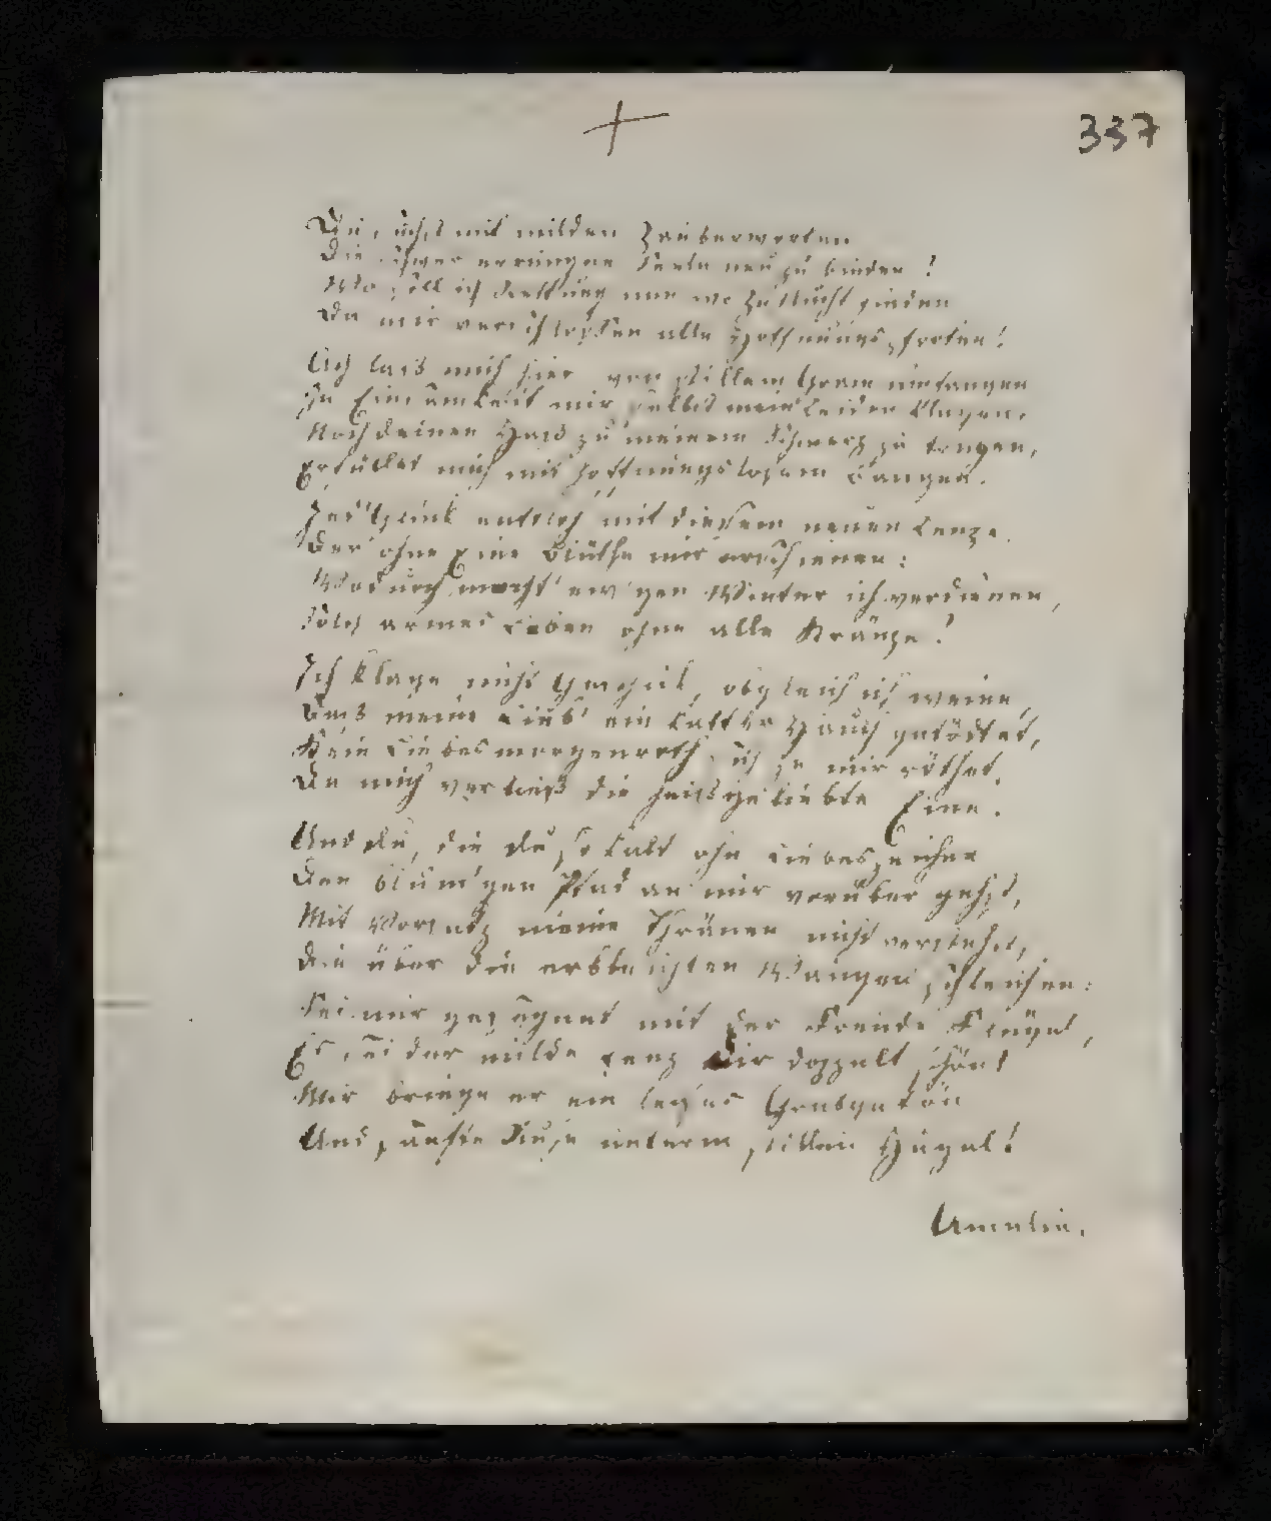 337
Du suchst mit milden Zauberworten
Die schwer errungne Seele neu zu binden!
Wo soll ich Rettung nun wo Zuflucht finden
Da mir verschloßen alle Hoffnungspforten!
Ach lass mich hier von stillem Gram umfangen
In Einsamkeit mir selbst mein Leiden klagen,
Noch deinen Hass zu meinem Schmerz zu tragen,
Erfüllet mich mit hoffnungslosem Bangen.
Jed' Glück entfloh mit diesem neuen Lenze.
Der ohne Eine Blüthe mir erschienen:
Wodurch mocht' ew'gen Winter ich verdienen,
Solch armes Leben ohne alle Kränze!
Ich klage nicht Geschick, obgleich ich weine,
Dass meine Lieb' ein kalter Hauch getödtet,
Kein Liebesmorgenroth sich je mir röthet,
Da mich verließ die heissgeliebte Eine.
Und du, die du so kalt ohn Liebeszeichen
Den blum'gen Pfad an mir vorüber gehst,
Mit Vorsatz meine Thränen nicht verstehst,
Die über die erbleichten Wangen schleichen:
Sei mir gesegnet mit der Freude Flügel,
Es sei der milde Lenz dir doppelt schön!
Mir bringe er ein leises Grabgetön
Und sanfte Ruhe unterm stillen Hügel!
Amalie.